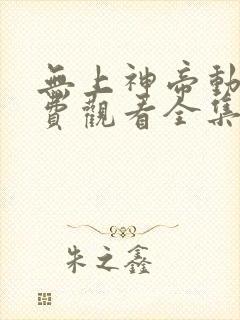 無上神帝動
費觀看全集
朱之鑫